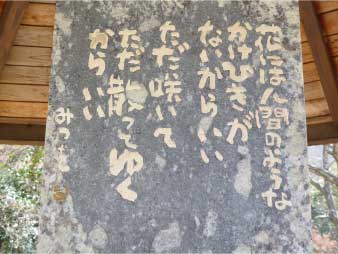 花には人間のような
かけひきが
ないからいい
ただ咲いて
ただ散ってゆく
からいい
みつを